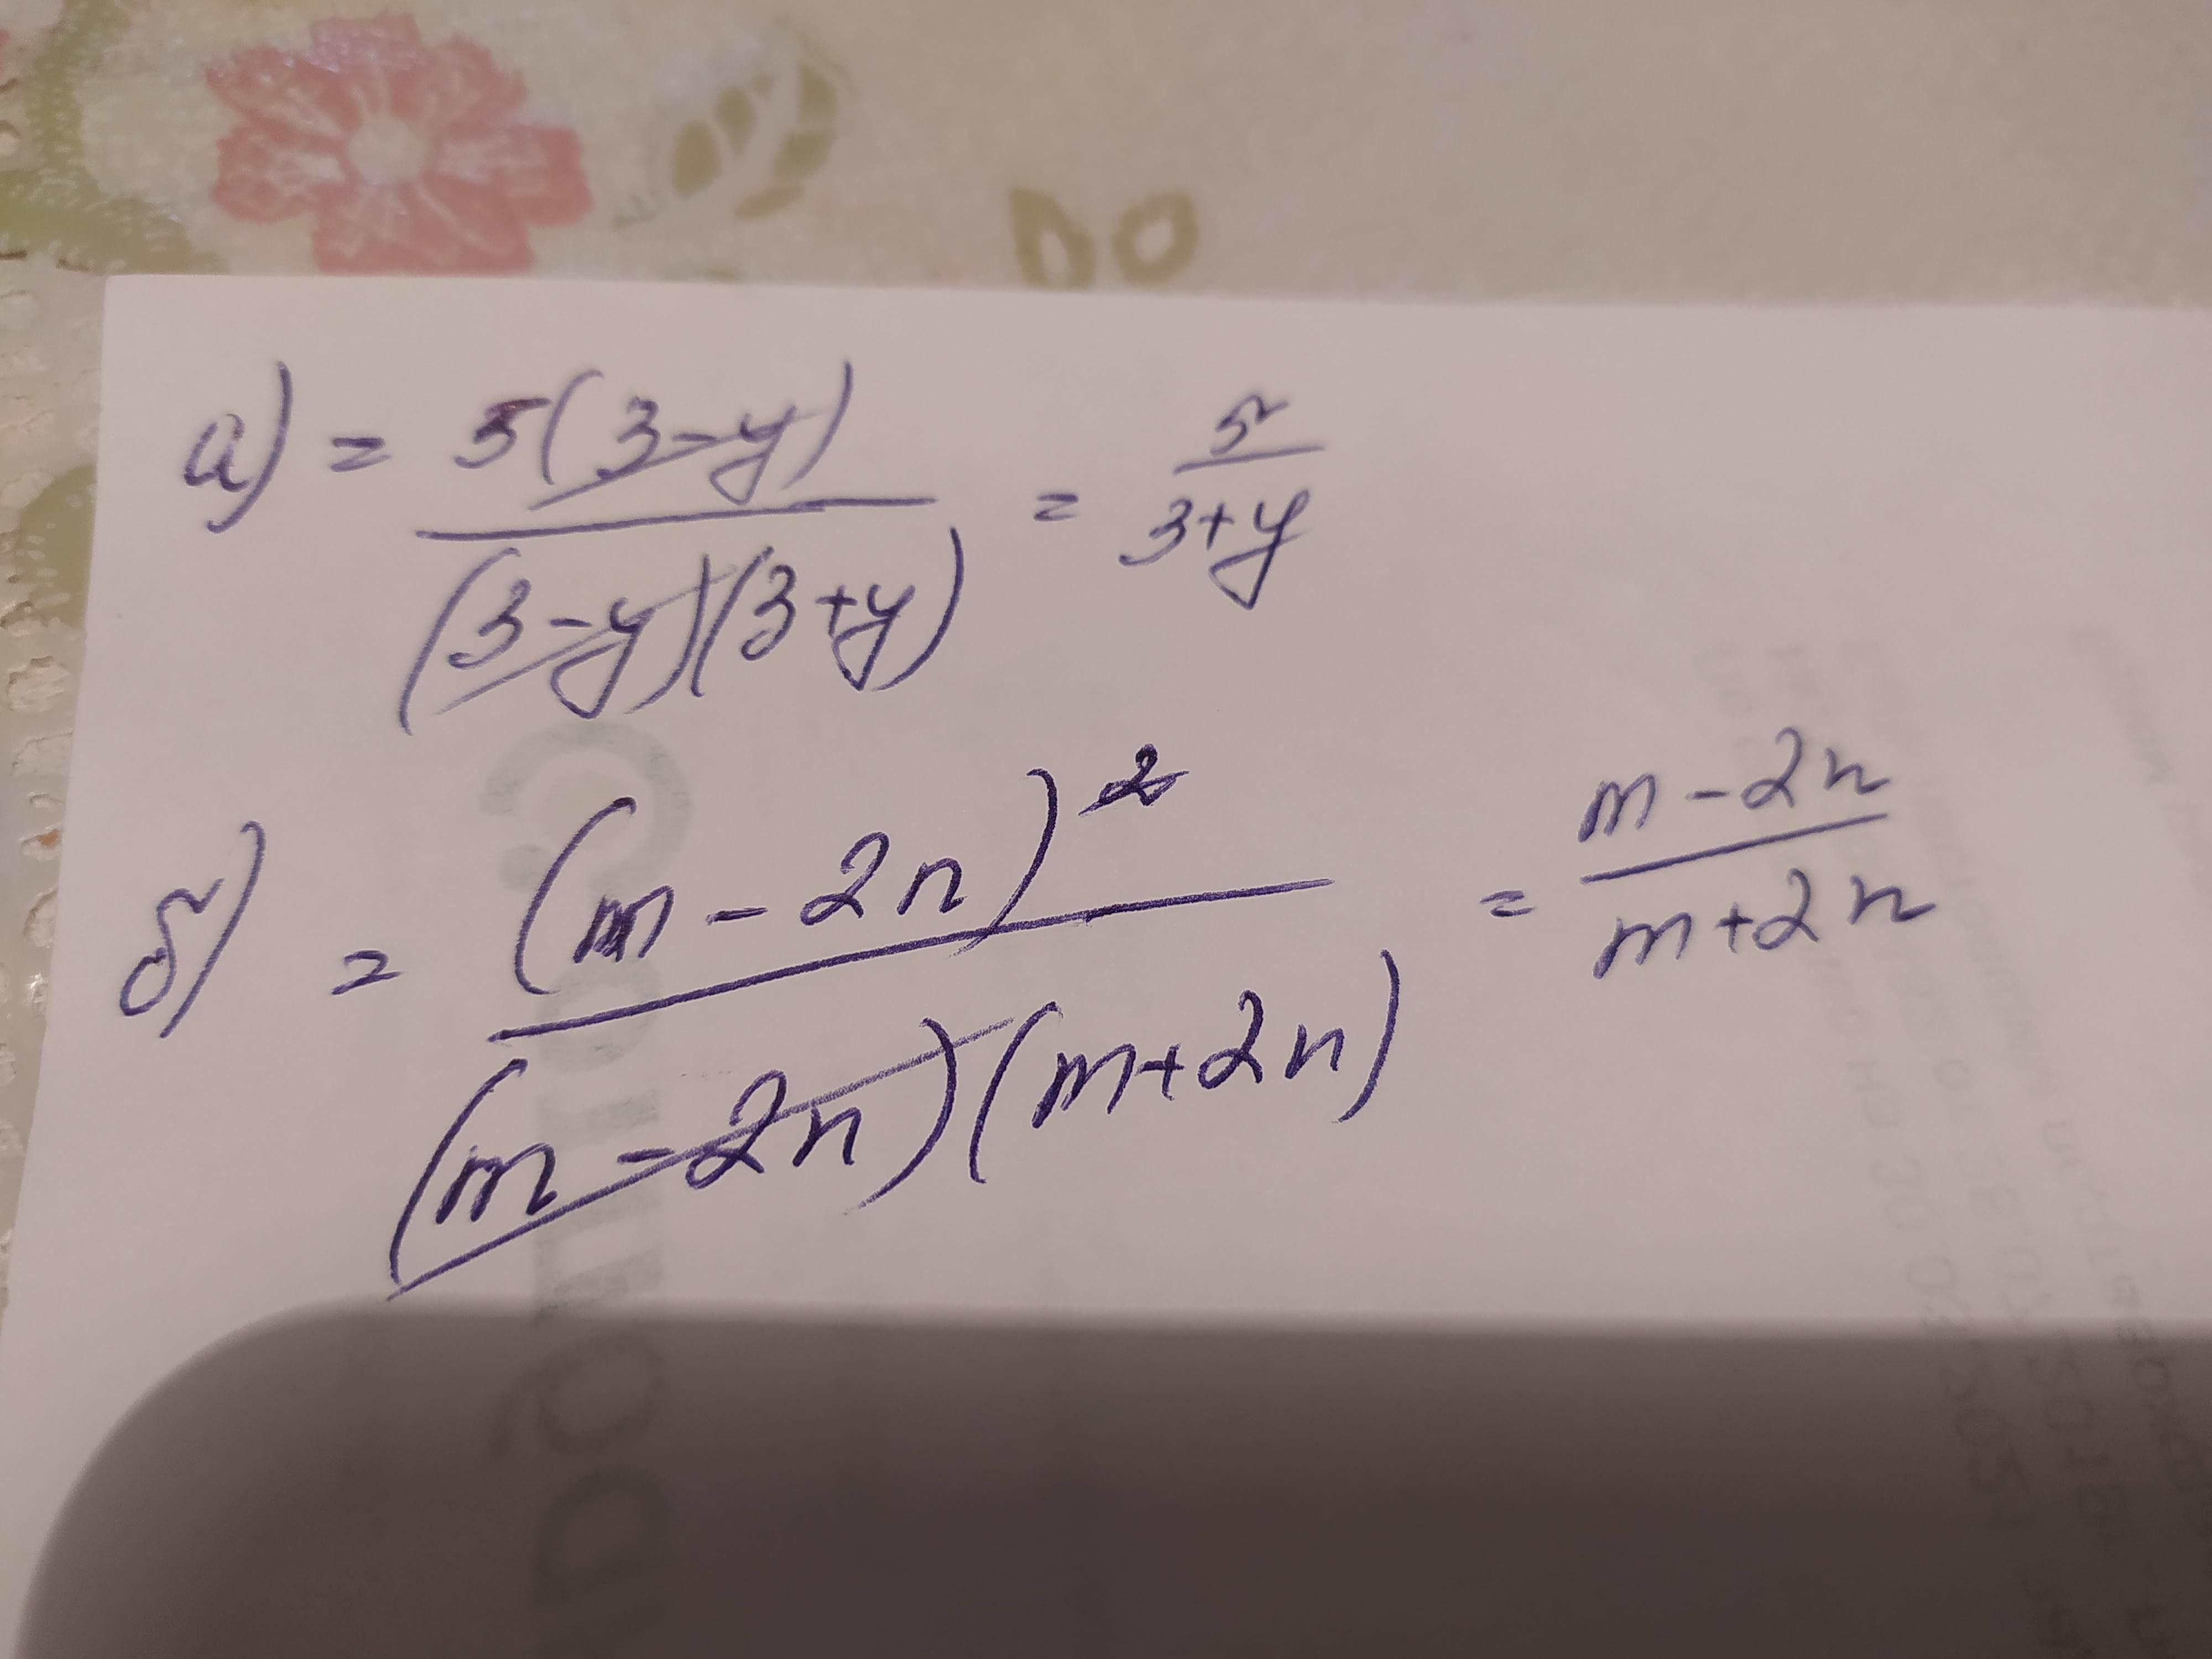 а) = 5(3-y) / (3-y)(3+y) = 5 / 3+y
б) = (m-2n)² / (m-2n)(m+2n) = m-2n / m+2n